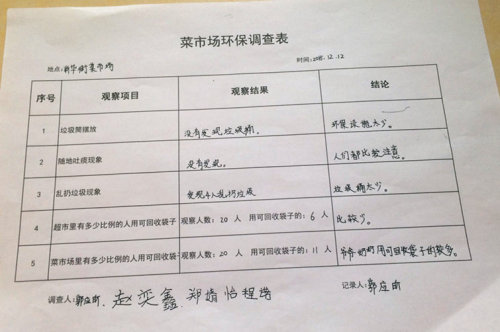 菜市场环保调查表
地点：新华街菜市场 时间：2015.12.12
序号 观察项目 观察结果 结论
1 垃圾筒摆放 没有发现垃圾桶。 环保设施太少。
2 随地吐痰现象 没有发现。 人们都比较注意。
3 乱扔垃圾现象 发现4人乱扔垃圾 垃圾桶太少。
4 超市里有多少比例的人用可回收袋子 观察人数：20 人 用可回收袋子的：6 人 比较少。
5 菜市场里有多少比例的人用可回收袋子 观察人数：20 人 用可回收袋子的：11 人 爷爷奶奶用可回收袋子的较多。
调查人： 赵奕鑫 郑婧怡 记录人：